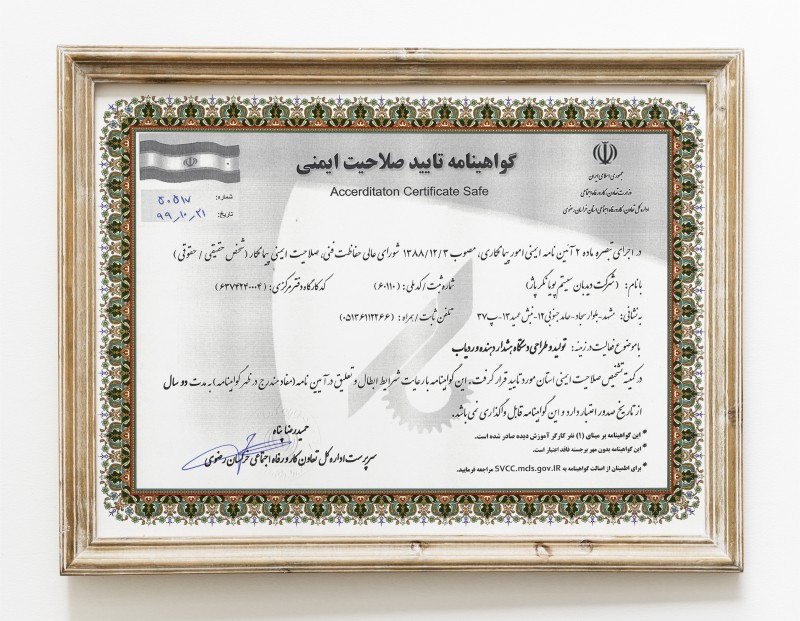 جمهوری اسلامی ایران
وزارت تعاون، کار و رفاه اجتماعی
اداره کل تعاون، کار و رفاه اجتماعی استان خراسان رضوی
گواهینامه تایید صلاحیت ایمنی
Accerditaton Certificate Safe
شماره: ۵۰۵۱۷
تاریخ: ۹۹-۱۰-۲۱
در اجرای تبصره ماده ۲ آئین نامه ایمنی امور پیمانکاری، مصوب ۱۳۸۸/۱۲/۳ شورای عالی حفاظت فنی، صلاحیت ایمنی پیمانکار (شخص حقیقی / حقوقی)
با نام: (شرکت دیدبان سیستم پویا نگر پاژ) شماره ثبت / کد ملی: (۶۰۱۱۰) کد کارگاه دفتر مرکزی: (۶۳۷۴۲۴۰۰۰۴)
به نشانی: مشهد-بلوار سجاد-حامد جنوبی۱۲-نبش عمید۱۳-پ۳۷ تلفن ثابت / همراه: (۰۵۱۳۶۱۱۲۲۶۶)
با موضوع فعالیت در زمینه: تولید و طراحی دستگاه هشدار دهنده و ردیاب
در کمیته تشخیص صلاحیت ایمنی استان مورد تایید قرار گرفت. این گواهینامه با رعایت شرایط ابطال و تعلیق در آیین نامه (مفاد مندرج در ظهر گواهینامه) به مدت دو سال
از تاریخ صدور اعتبار دارد و این گواهینامه قابل واگذاری نمی باشد.
* این گواهینامه بر مبنای (۱) نفر کارگر آموزش دیده صادر شده است.
* این گواهینامه بدون مهر برجسته فاقد اعتبار است.
* برای اطمینان از اصالت گواهینامه به SVCC.mcls.gov.IR مراجعه فرمایید.
حمیدرضا پناه
سرپرست اداره کل تعاون کار و رفاه اجتماعی خراسان رضوی